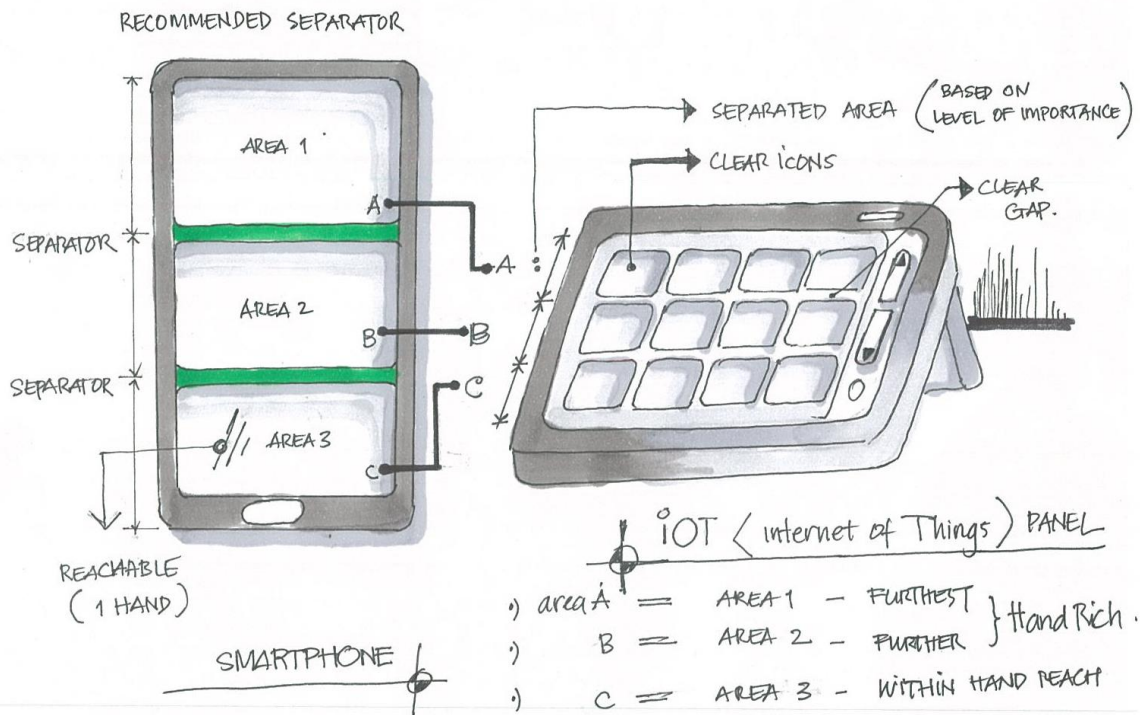 RECOMMENDED SEPARATOR
AREA 1
A
SEPARATOR
AREA 2
B
SEPARATOR
AREA 3
C
REACHABLE
(1 HAND)
SMARTPHONE
A :
B
C
SEPARATED AREA (BASED ON
LEVEL OF IMPORTANCE)
CLEAR ICONS
CLEAR
GAP.
IOT < internet of Things > PANEL
•) area A = AREA 1 - FURTHEST
•) B = AREA 2 - FURTHER } Hand Rich.
•) C = AREA 3 - WITHIN HAND REACH